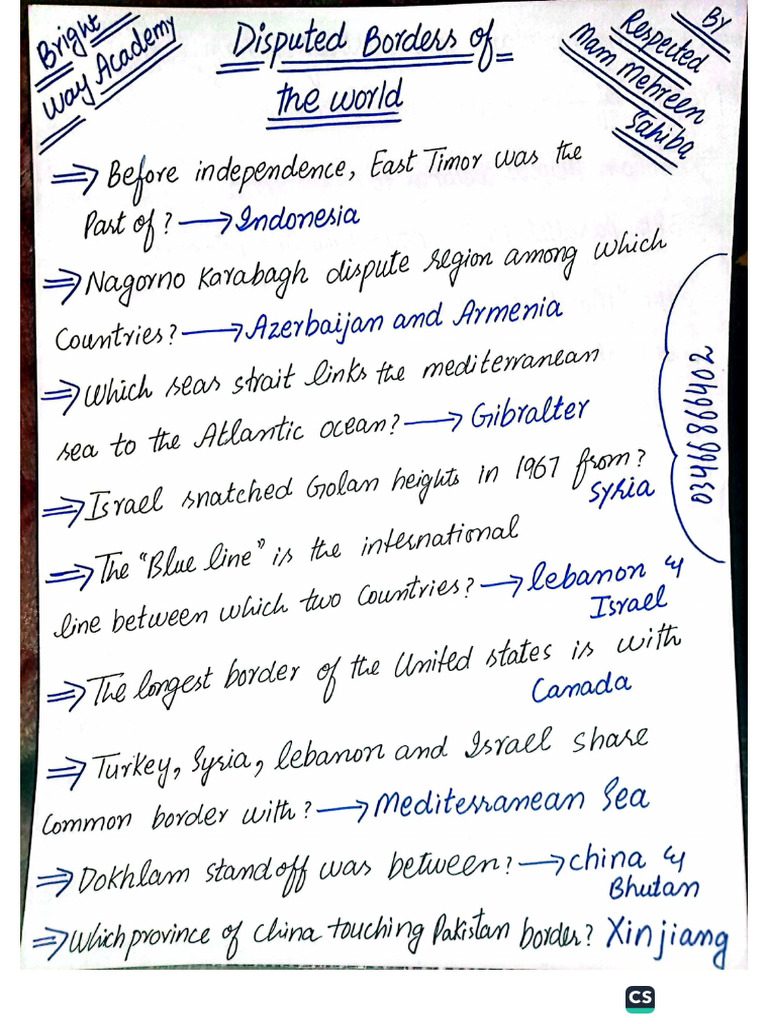 Bright
Way Academy
Disputed Borders of
the world
By
Respected
Mam Mehreen
Sahiba
⇒ Before independence, East Timor was the
Part of? → Indonesia
⇒ Nagorno Karabagh dispute region among which
Countries? → Azerbaijan and Armenia
⇒ Which seas strait links the mediterranean
sea to the Atlantic ocean? → Gibralter
⇒ Israel snatched Golan heights in 1967 from?
Syria
⇒ The "Blue line" is the international
line between which two Countries? → lebanon &
Israel
⇒ The longest border of the United states is with
Canada
⇒ Turkey, Syria, lebanon and Israel share
Common border with? → Mediterranean Sea
⇒ Dokhlam standoff was between? → China &
Bhutan
⇒ Which province of China touching Pakistan border? Xinjiang
03499899402
CS